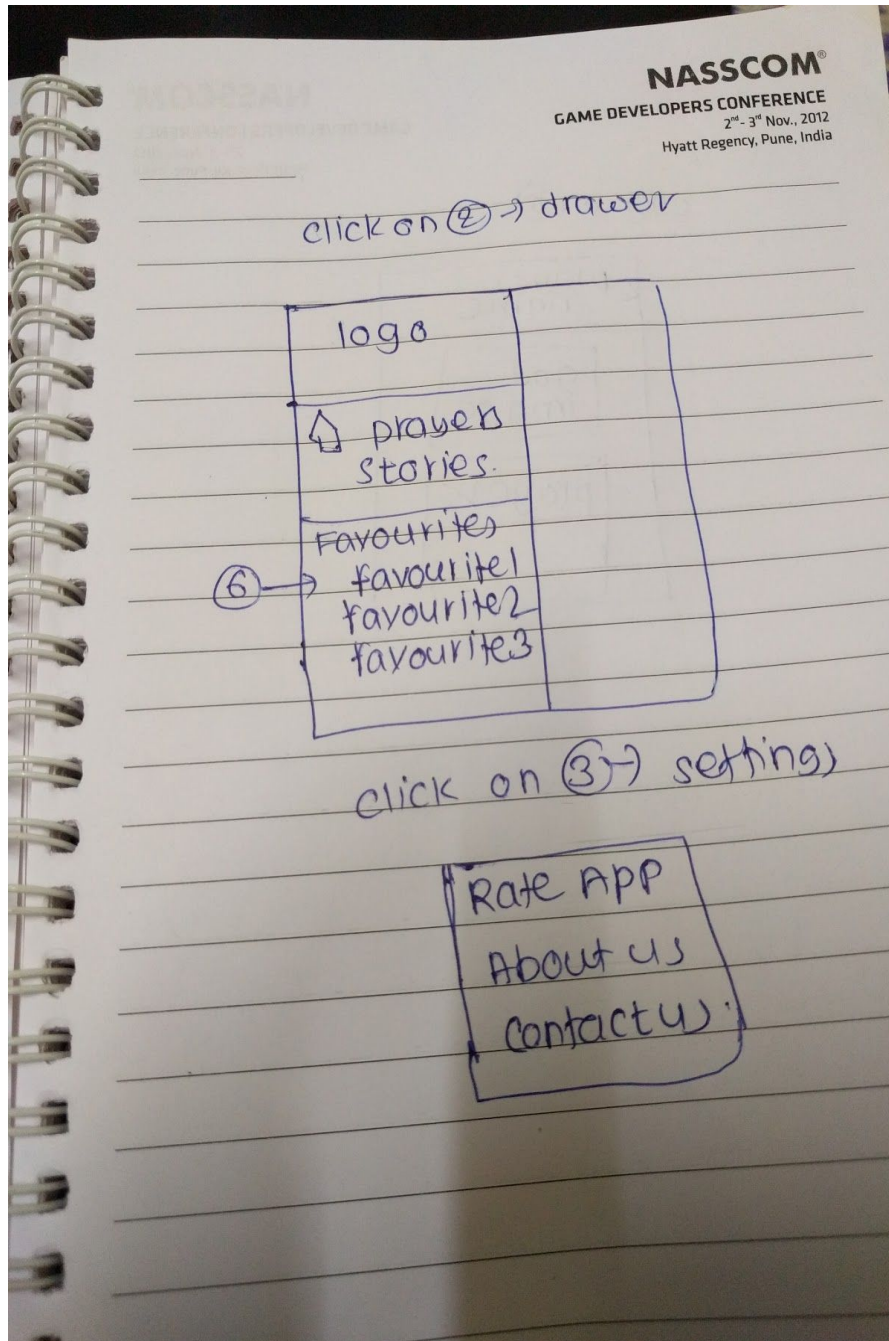 NASSCOM®
GAME DEVELOPERS CONFERENCE
2nd - 3rd Nov., 2012
Hyatt Regency, Pune, India
click on ② → drawer
logo
prayers
stories.
Favourites
⑥ → favourite1
favourite2
favourite3
click on ③ → settings
Rate App
About us
contact us.